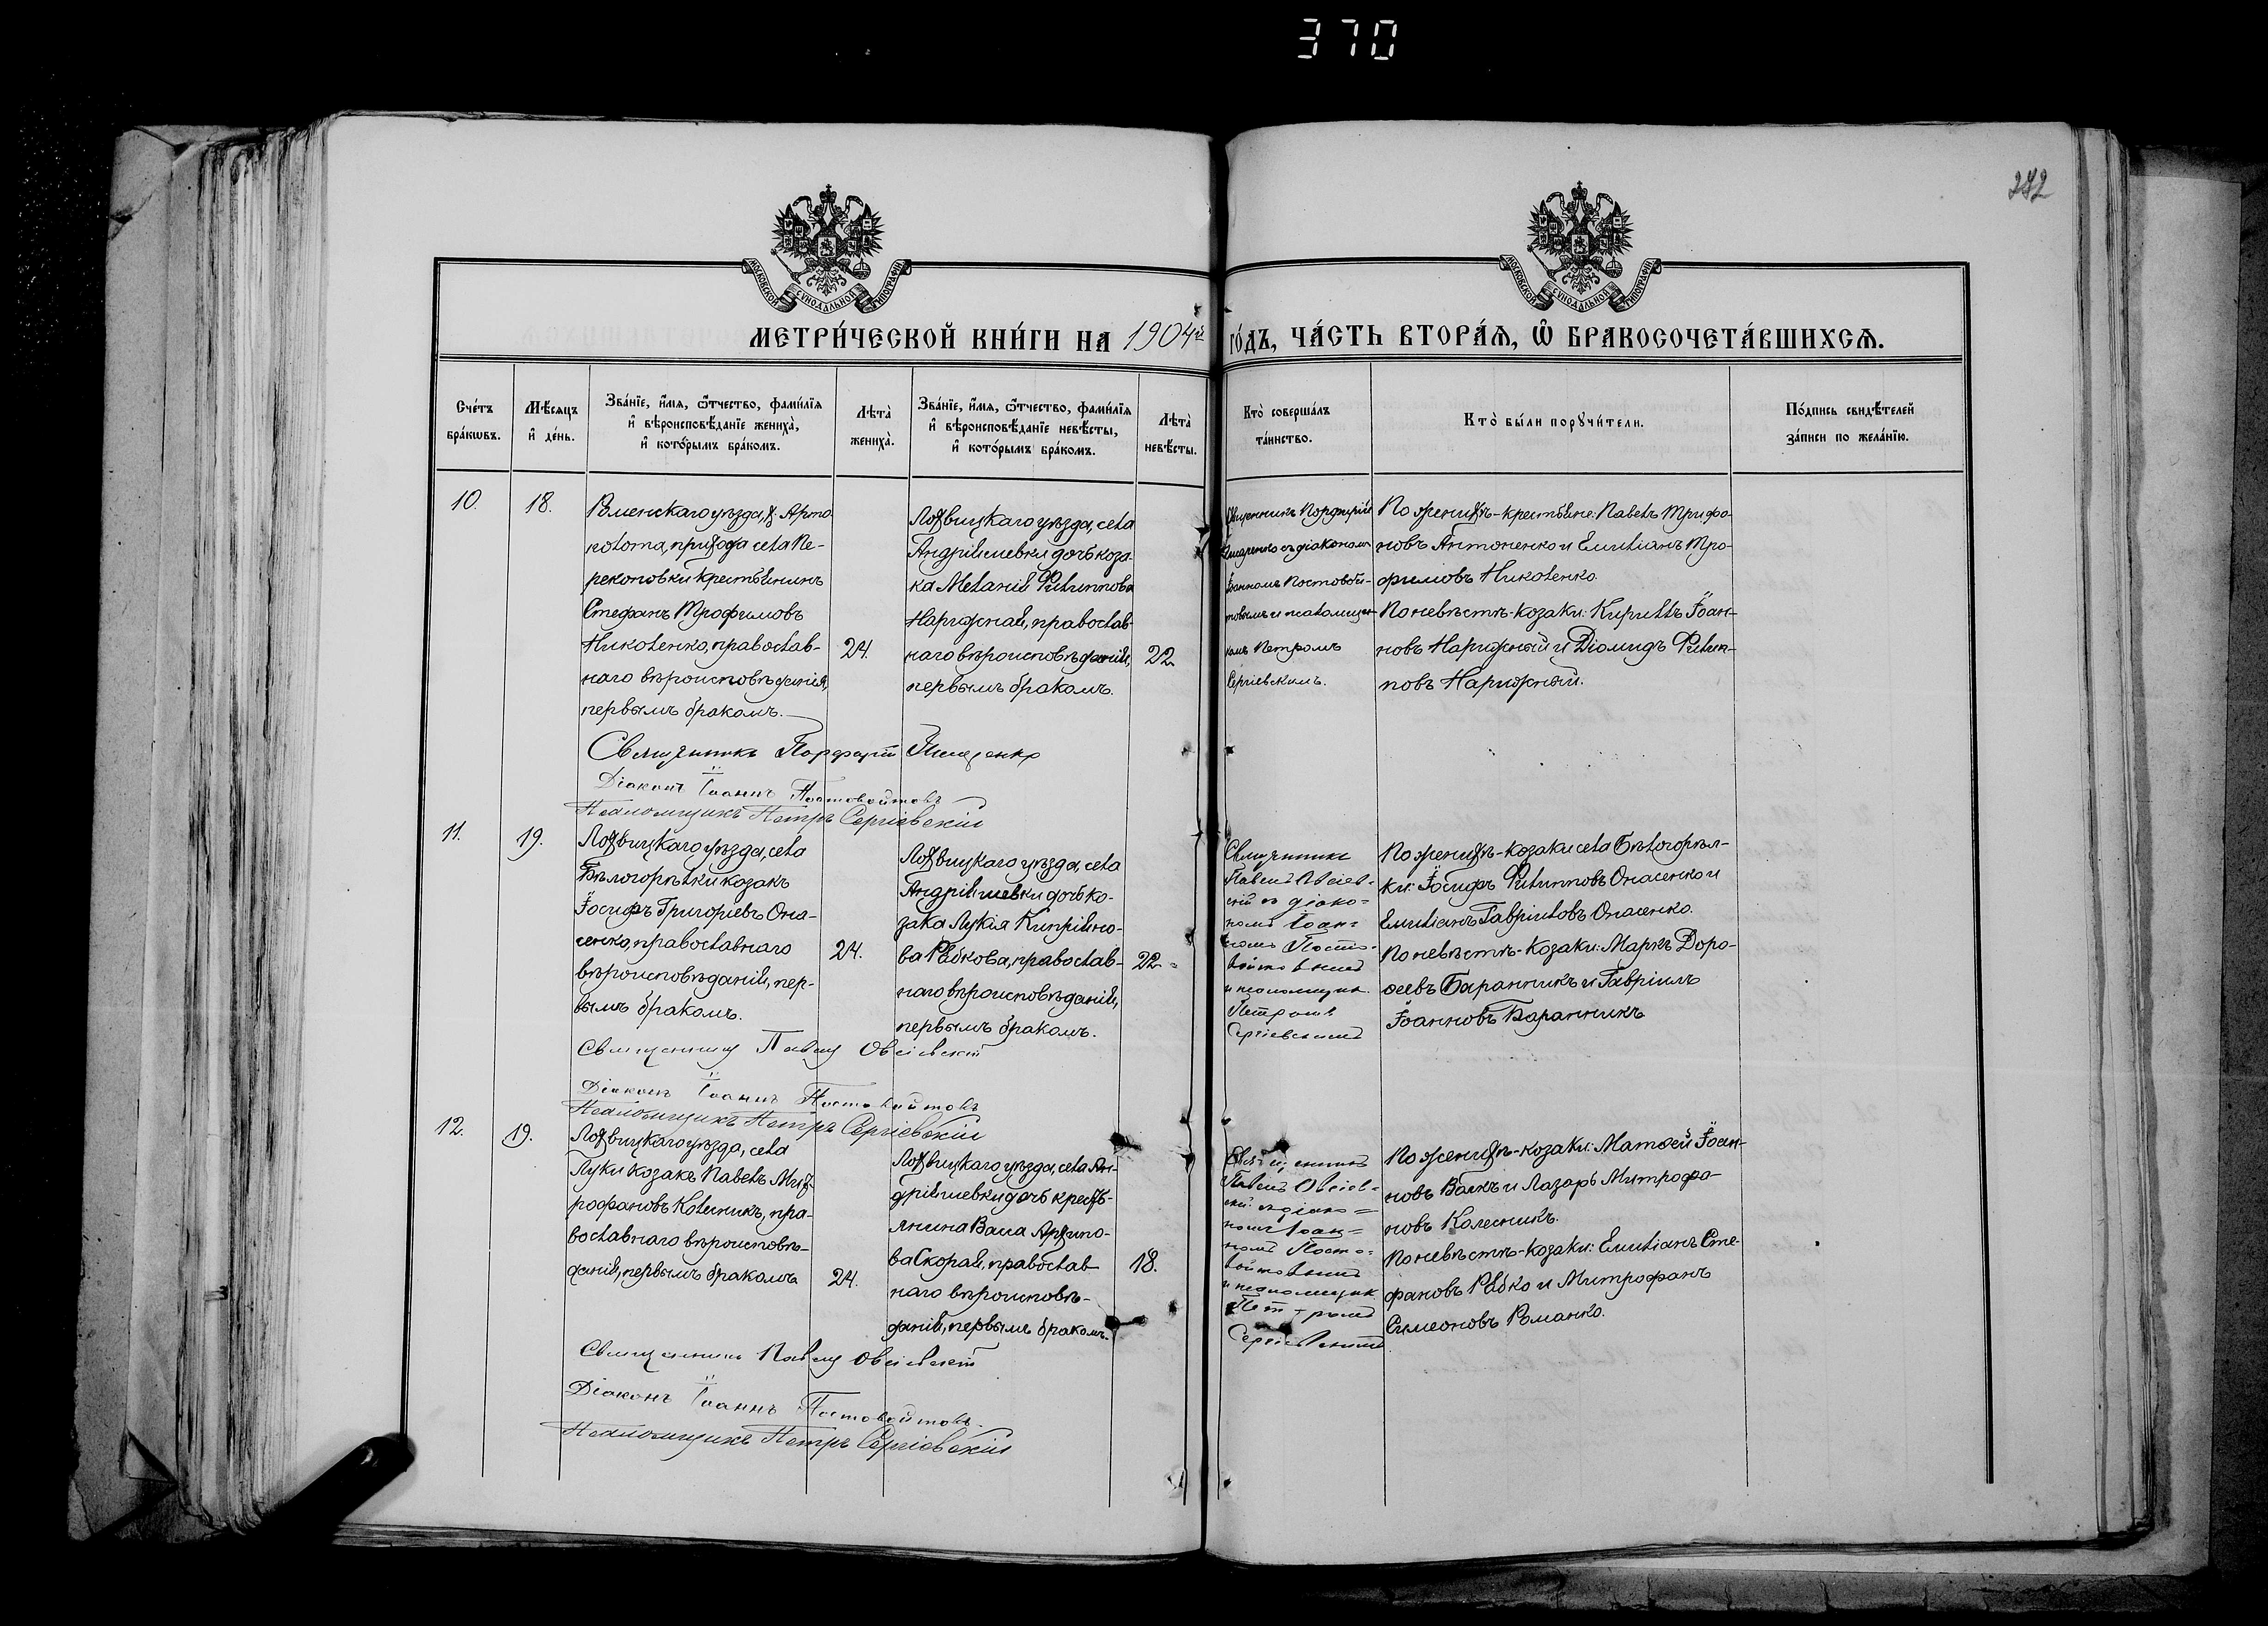 370
282
МОСКОВСКОЙ СѴНОДАЛЬНОЙ ТИПОГРАФІИ
МОСКОВСКОЙ СѴНОДАЛЬНОЙ ТИПОГРАФІИ
МЕТРИ́ЧЕСКОЙ КНИ́ГИ НА 1904й
ГО́ДЪ, ЧА́СТЬ ВТОРА́Ѧ, Ѽ БРАКОСОЧЕТА́ВШИХСѦ.
Сче́тъ
бра́кѡвъ.
Мѣ́сѧцъ
и҆ де́нь.
Зва́нїе, и҆́мѧ, ѻ҆́тчество, фами́лїѧ
и҆ вѣроисповѣ́данїе жениха̀,
и҆ кото́рымъ бра́комъ.
Лѣта̀
жениха̀.
Зва́нїе, и҆́мѧ, ѻ҆́тчество, фами́лїѧ
и҆ вѣроисповѣ́данїе невѣ́сты,
и҆ кото́рымъ бра́комъ.
Лѣта̀
невѣ́сты.
Кто̀ соверша́лъ
та́инство.
Кто̀ бы́ли порꙋчи́тели.
По́дпись свидѣ́телей
за́писи по жела́нїю.
10.
18.
Роменскаго уѣзда, х. Арто-
полота, прихода села Пе-
рекоповки крестьянинъ
Стефанъ Трофимовъ
Николенко, православ-
наго вѣроисповѣданія,
первымъ бракомъ.
24.
Лохвицкаго уѣзда, села
Андріяшевки дочь коза-
ка Меланія Филиппова
Нарижная, православ-
наго вѣроисповѣданія,
первымъ бракомъ.
22.
Священникъ Порфирій
Тимченко съ діакономъ
Іоанномъ Постовой-
товымъ и псаломщи-
комъ Петромъ
Сергіевскимъ.
По женихѣ - крестьяне: Павелъ Трифо-
новъ Антоненко и Емиліанъ Тро-
фимовъ Николенко.
По невѣстѣ - козаки: Кириллъ Іоан-
новъ Нарижный и Діомидъ Филип-
повъ Нарижный.
Священникъ Порфирій
Діаконъ Іоаннъ Постовойтовъ
Псаломщикъ Петръ Сергіевскій
11.
19.
Лохвицкаго уѣзда, села
Бѣлогорѣлки козакъ
Іосифъ Григоріевъ Опа-
сенко, православнаго
вѣроисповѣданія, пер-
вымъ бракомъ.
24.
Лохвицкаго уѣзда, села
Андріяшевки дочь ко-
зака Лукія Кипріяно-
ва Рябкова, православ-
наго вѣроисповѣданія,
первымъ бракомъ.
22
Священникъ
Павелъ Овсіев-
скій съ діако-
номъ Іоан-
номъ Посто-
войтовымъ
и псаломщик.
Петромъ
Сергіевскимъ
По женихѣ - козаки села Бѣлогорѣл-
ки: Іосифъ Филипповъ Опасенко и
Емиліанъ Гавріиловъ Опасенко.
По невѣстѣ - козаки: Маркъ Доро-
ѳеевъ Баранникъ и Гавріилъ
Іоанновъ Баранникъ
Священникъ Павелъ Овсіевскій
Діаконъ Іоаннъ Постовойтовъ
Псаломщикъ Петръ Сергіевскій
12.
19.
Лохвицкаго уѣзда, села
Луки козакъ Павелъ Мит-
рофановъ Колесникъ, пра-
вославнаго вѣроисповѣ-
данія, первымъ бракомъ
24.
Лохвицкаго уѣзда, села Ан-
дріяшевки дочь кресть-
янина Васса Архипо-
ва Скорая, православ-
наго вѣроисповѣ-
данія, первымъ бракомъ.
18.
Священникъ
Павелъ Овсіев-
скій съ діако-
номъ Іоан-
номъ Посто-
войтовымъ
и псаломщик.
Петромъ
Сергіевскимъ
По женихѣ - козаки: Матѳей Іоан-
новъ Васкъ и Лазарь Митрофа-
новъ Колесникъ.
По невѣстѣ - козаки: Емиліанъ Сте-
фановъ Рябко и Митрофанъ
Симеоновъ Романко.
Священникъ Павелъ Овсіевскій
Діаконъ Іоаннъ Постовойтовъ.
Псаломщикъ Петръ Сергіевскій